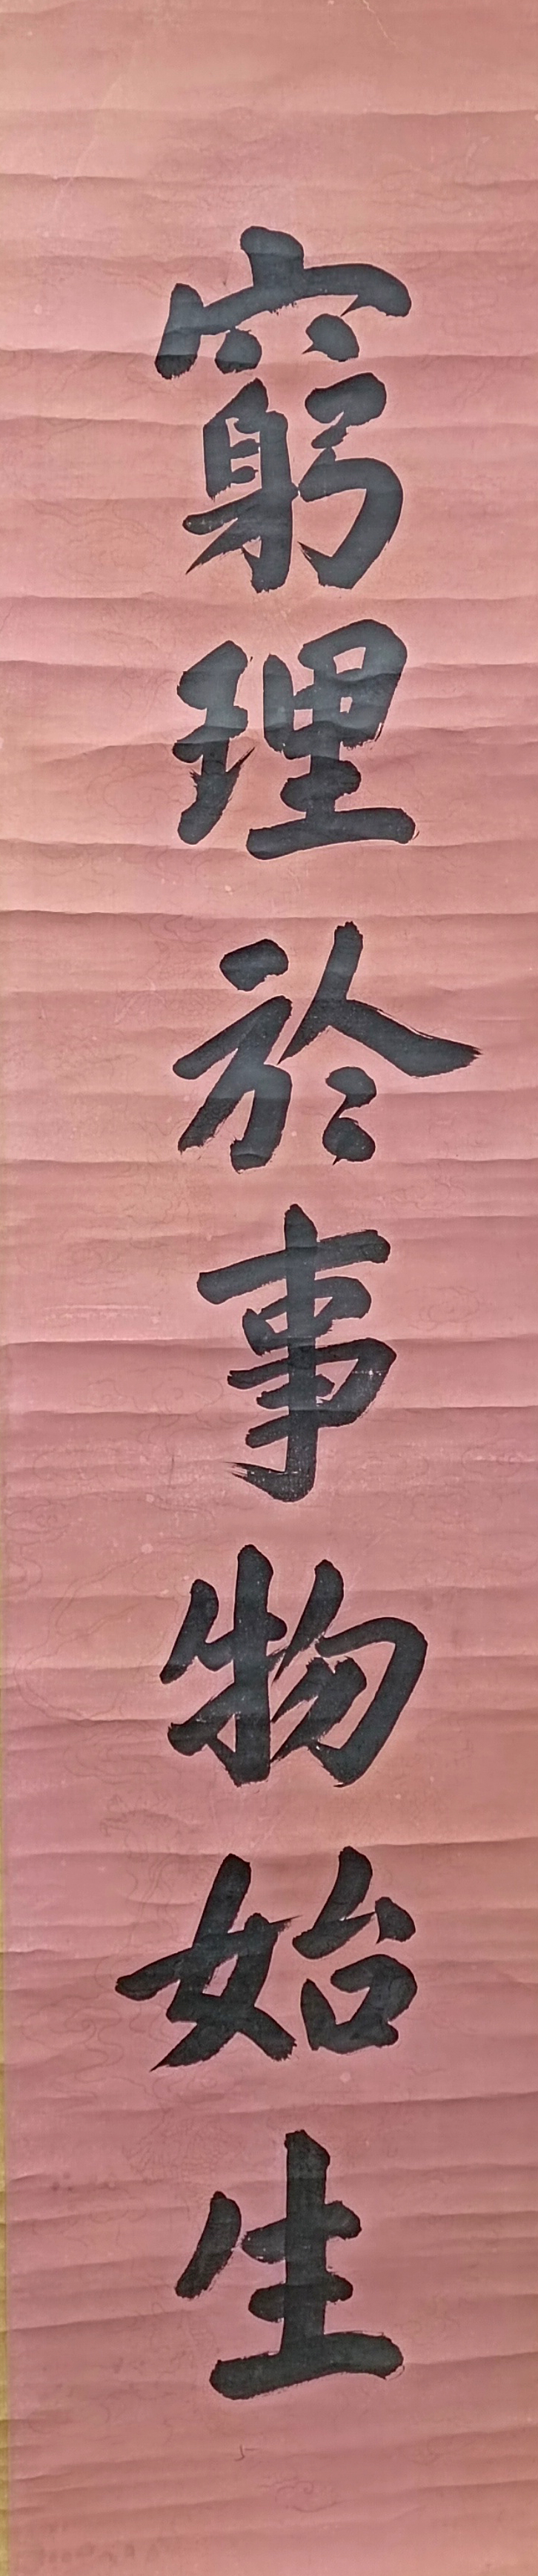 窮理於事物始生